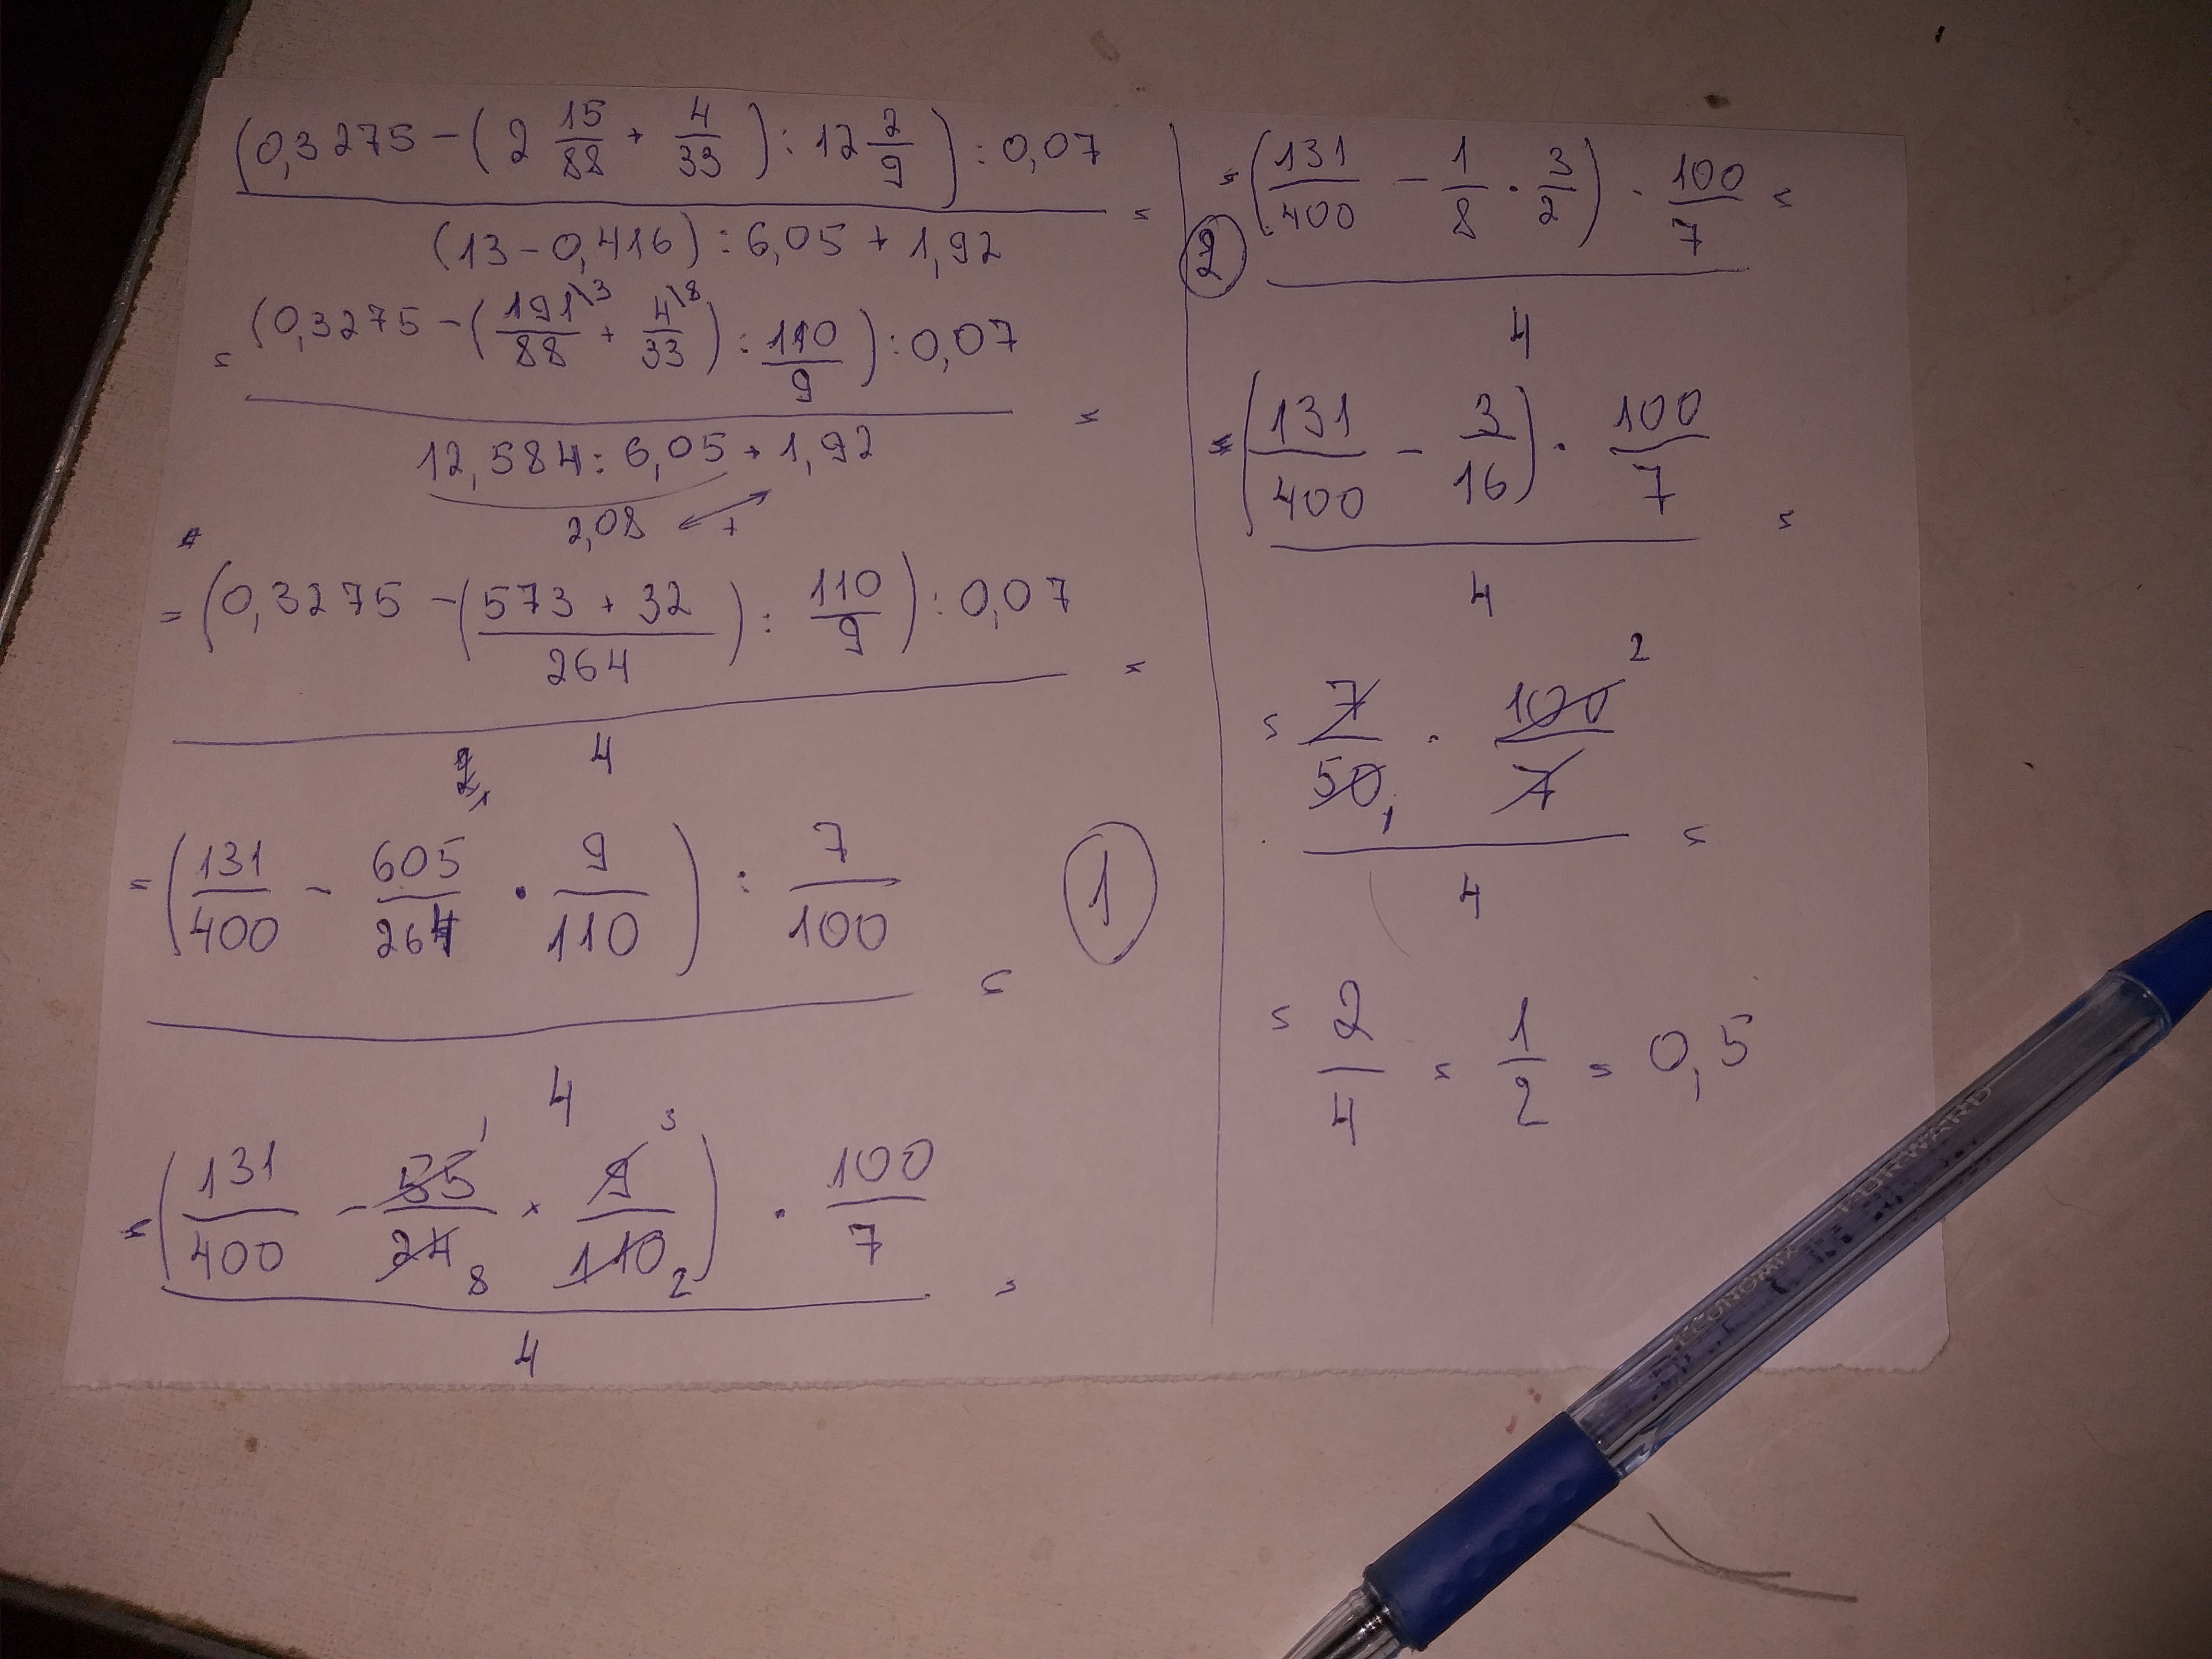 (0,3275 − (2 15/88 + 4/33) : 12 2/9) : 0,07
(13 − 0,416) : 6,05 + 1,92 =
= (0,3275 − (191\3/88 + 4\8/33) : 110/9) : 0,07
12,584 : 6,05 + 1,92 =
2,08 +
= (0,3275 − (573 + 32/264) : 110/9) : 0,07 =
4
= (131/400 − 605/264 · 9/110) : 7/100 =
4
= (131/400 − 55 1/24 8 × 9 3/110 2) · 100/7 =
4
1
2
= (131/400 − 1/8 · 3/2) · 100/7 =
4
= (131/400 − 3/16) · 100/7 =
4
= 7/50 1 · 100 2/7 =
4
= 2/4 = 1/2 = 0,5
ECONOMIX FORWARD